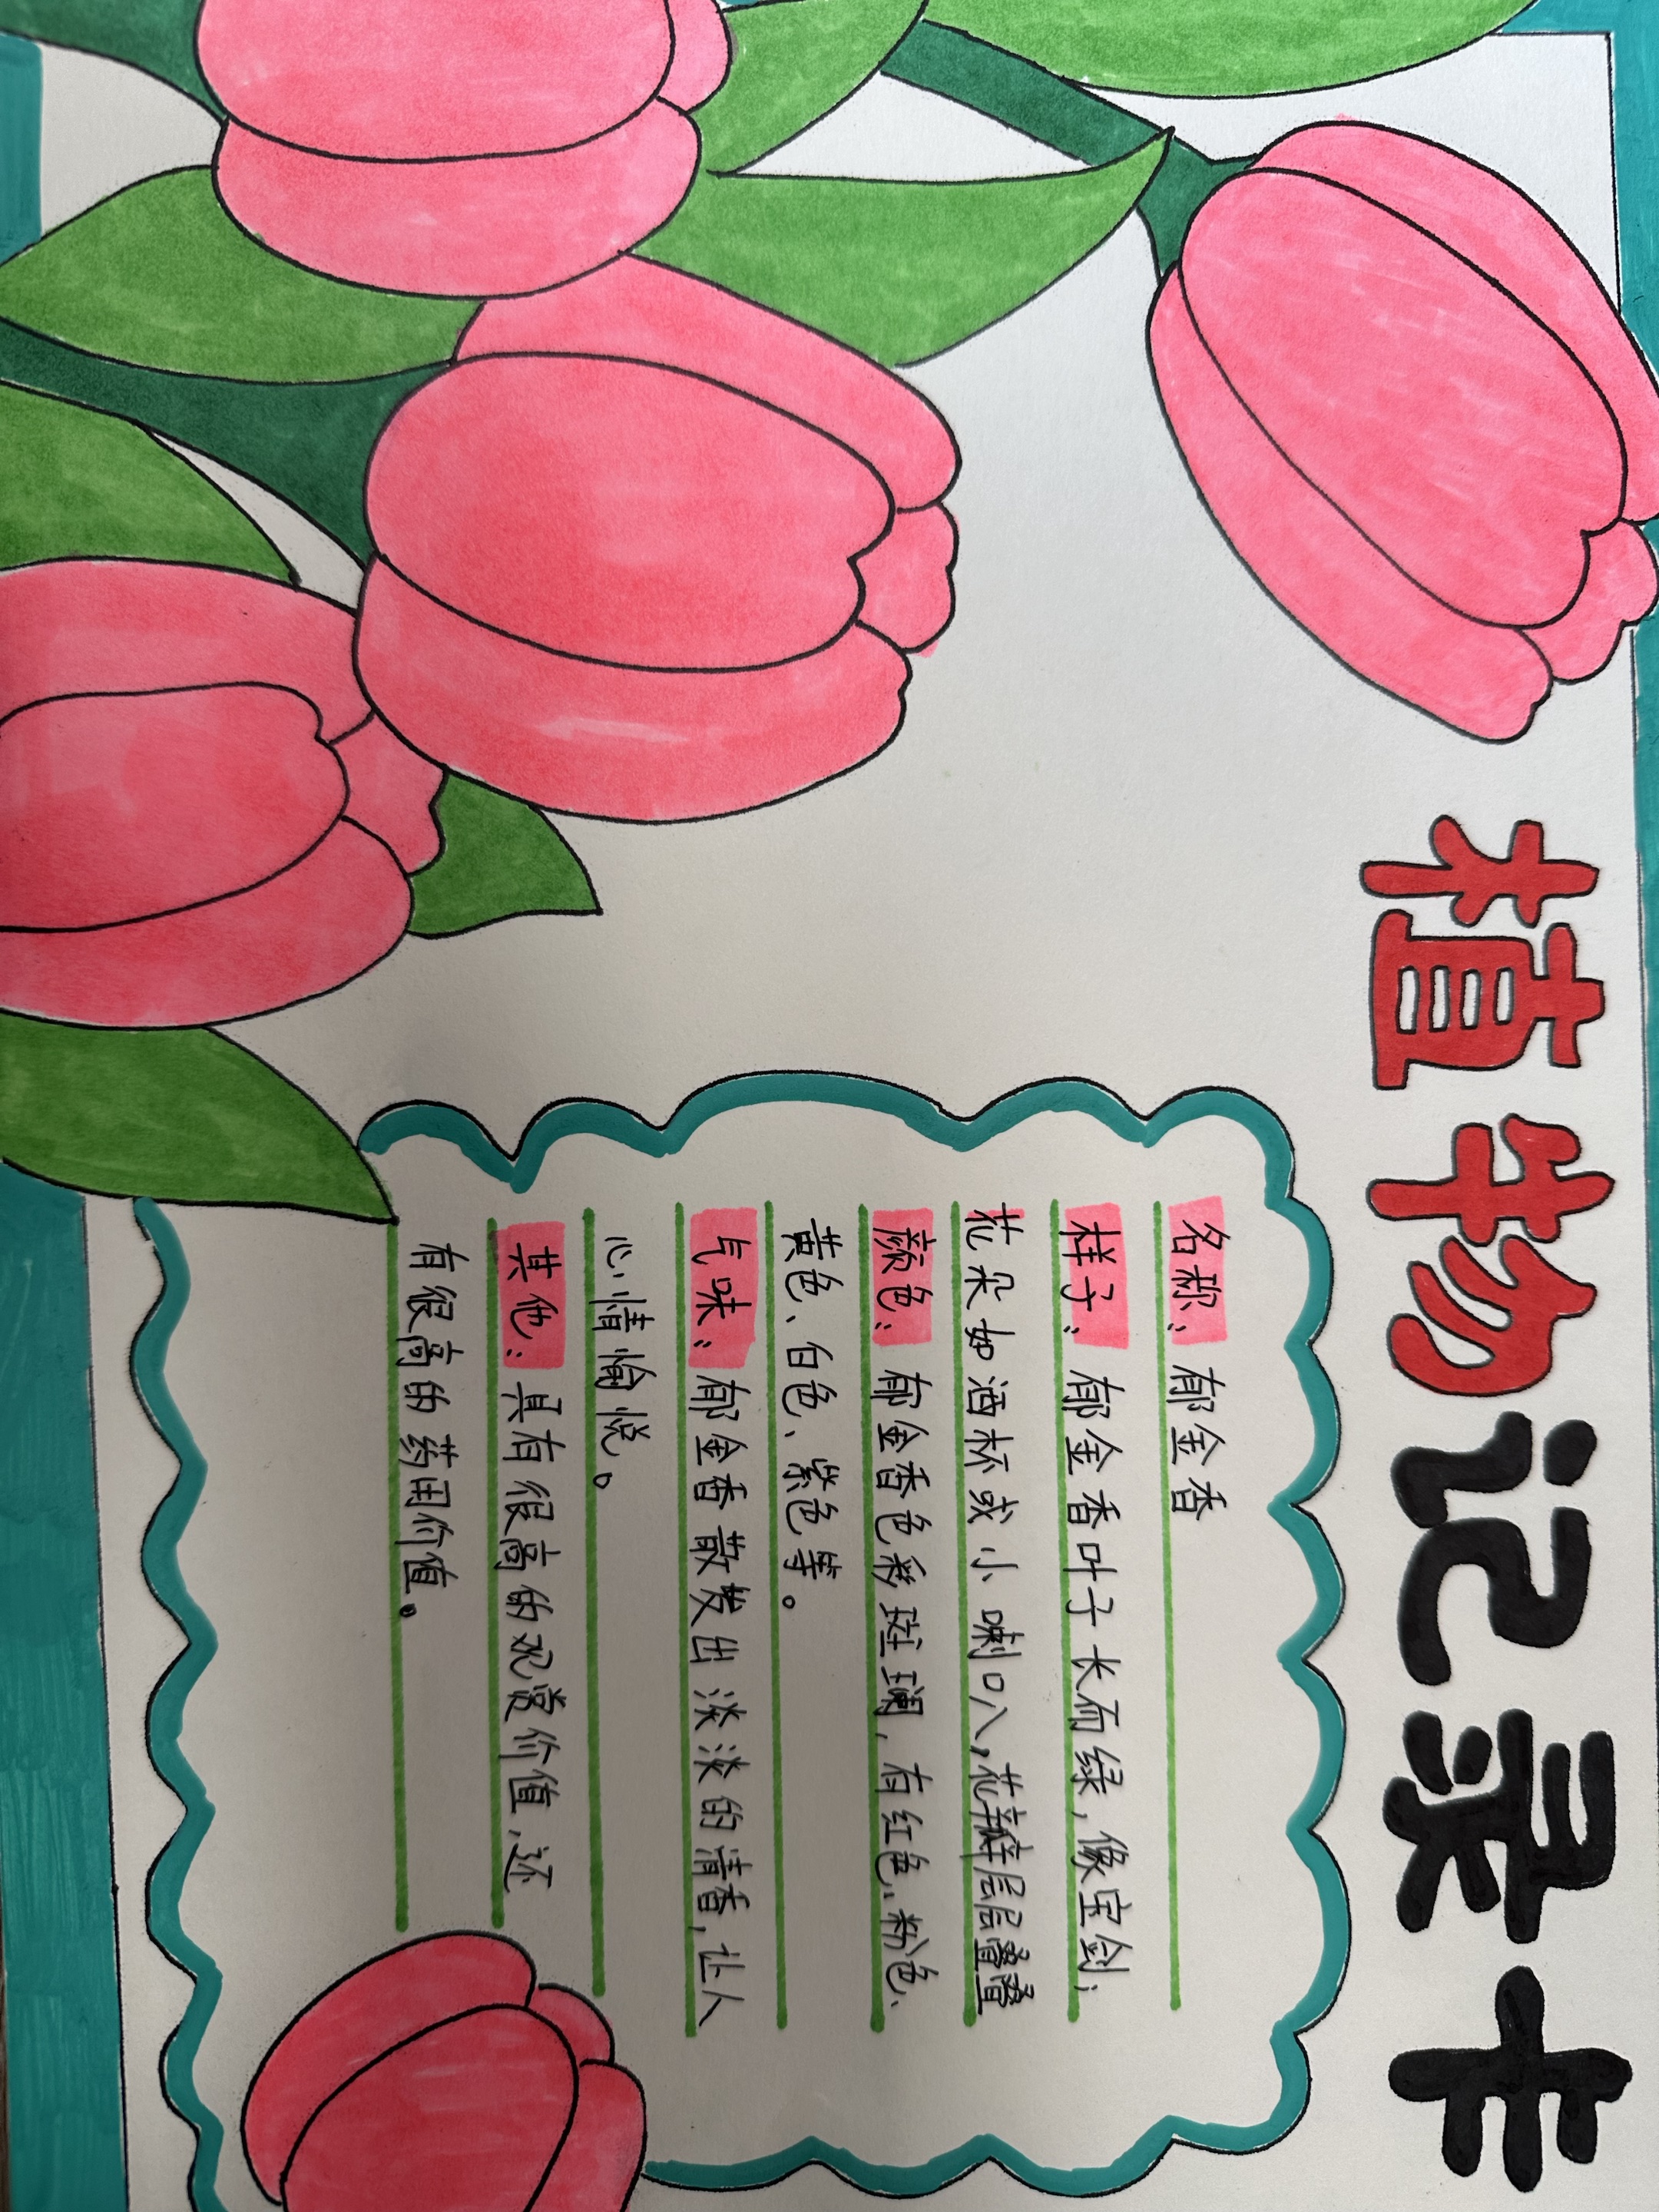 植物记录卡
名称：郁金香
样子：郁金香叶子长而绿，像宝剑；
花朵如酒杯或小喇叭，花瓣层层叠叠
颜色：郁金香色彩斑斓，有红色、粉色、
黄色、白色、紫色等。
气味：郁金香散发出淡淡的清香，让人
心情愉悦。
其他：具有很高的观赏价值，还
有很高的药用价值。